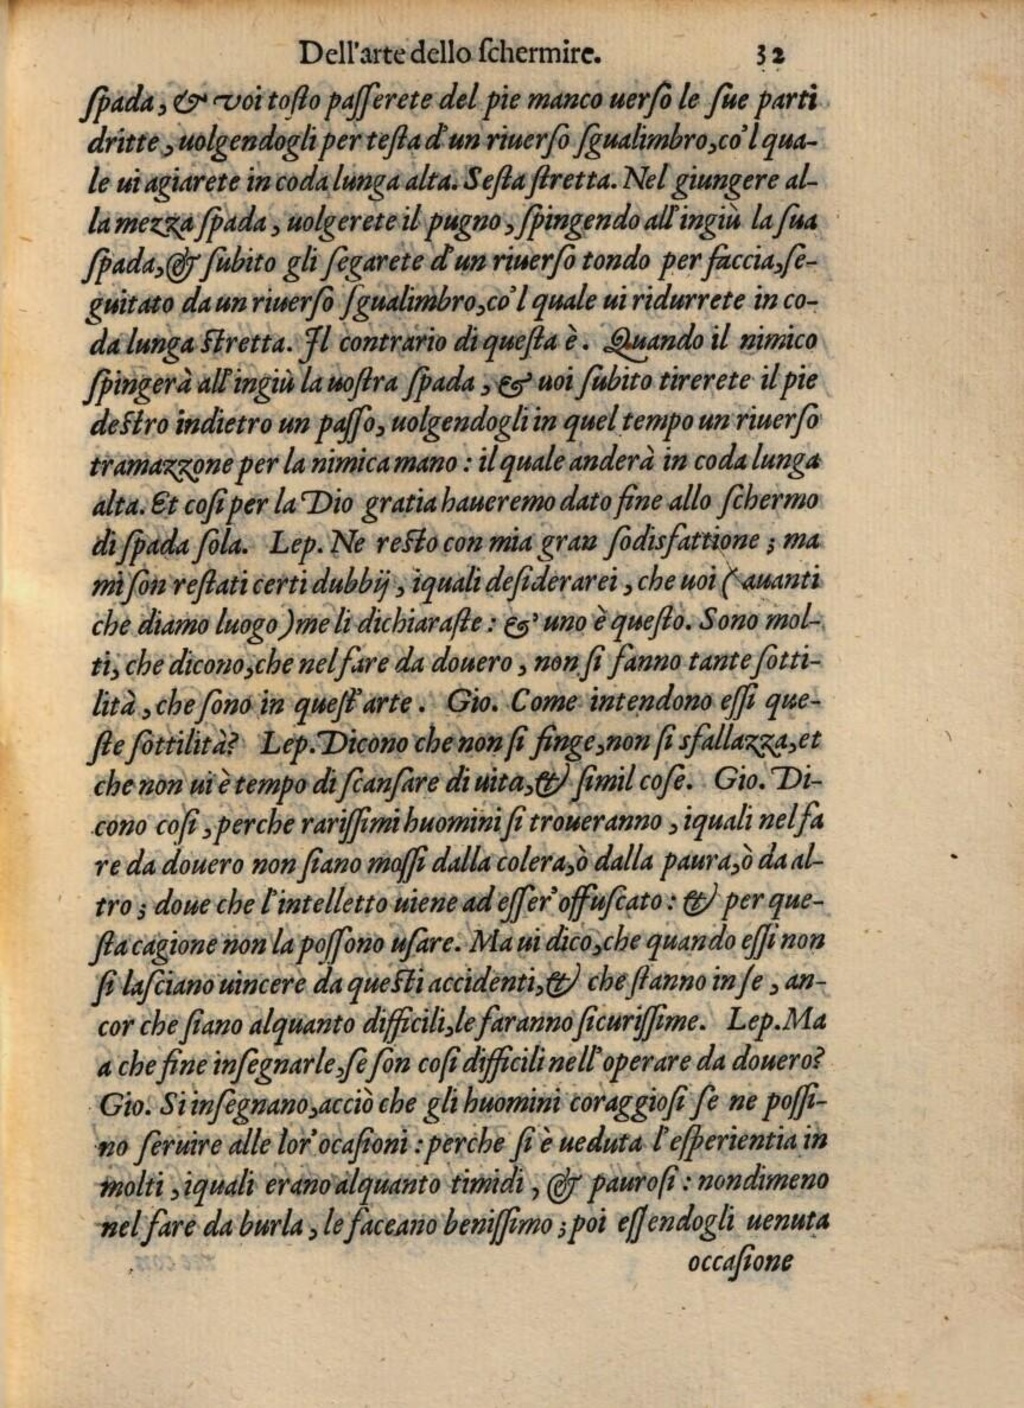 Dell'arte dello ſchermire. 32
ſpada, & voi toſto paſſerete del pie manco uerſo le ſue parti
dritte, uolgendogli per teſta d'un riuerſo ſgualimbro, co'l qua-
le ui agiarete in coda lunga alta. Seſta ſtretta. Nel giungere al-
la mezza ſpada, uolgerete il pugno, ſpingendo all'ingiù la ſua
ſpada, & ſubito gli ſegarete d'un riuerſo tondo per faccia, ſe-
guitato da un riuerſo ſgualimbro, co'l quale ui ridurrete in co-
da lunga ſtretta. Il contrario di queſta è. Quando il nimico
ſpingerà all'ingiù la uoſtra ſpada, & uoi ſubito tirerete il pie
deſtro indietro un paſſo, uolgendogli in quel tempo un riuerſo
tramazzone per la nimica mano : il quale anderà in coda lunga
alta. Et coſi per la Dio gratia haueremo dato fine allo ſchermo
di ſpada ſola. Lep. Ne reſto con mia gran ſodisfattione ; ma
mi ſon reſtati certi dubbij, iquali deſiderarei, che uoi (auanti
che diamo luogo) me li dichiaraſte : & uno è queſto. Sono mol-
ti, che dicono, che nel fare da douero, non ſi fanno tante ſotti-
lità, che ſono in queſt'arte. Gio. Come intendono eſſi que-
ſte ſottilità? Lep. Dicono che non ſi finge, non ſi sfallazza, et
che non ui è tempo di ſcanſare di uita, & ſimil coſe. Gio. Di-
cono coſi, perche rariſſimi huomini ſi troueranno, iquali nel fa
re da douero non ſiano moſſi dalla colera, ò dalla paura, ò da al-
tro ; doue che l'intelletto uiene ad eſſer' offuſcato : & per que-
ſta cagione non la poſſono uſare. Ma ui dico, che quando eſſi non
ſi laſciano uincere da queſti accidenti, & che ſtanno in ſe, an-
cor che ſiano alquanto difficili, le faranno ſicuriſſime. Lep. Ma
a che fine inſegnarle, ſe ſon coſi difficili nell'operare da douero?
Gio. Si inſegnano, acciò che gli huomini coraggioſi ſe ne poſſi-
no ſeruire alle lor' ocaſioni : perche ſi è ueduta l'eſperientia in
molti, iquali erano alquanto timidi, & pauroſi : nondimeno
nel fare da burla, le faceano beniſſimo ; poi eſſendogli uenuta
occaſione